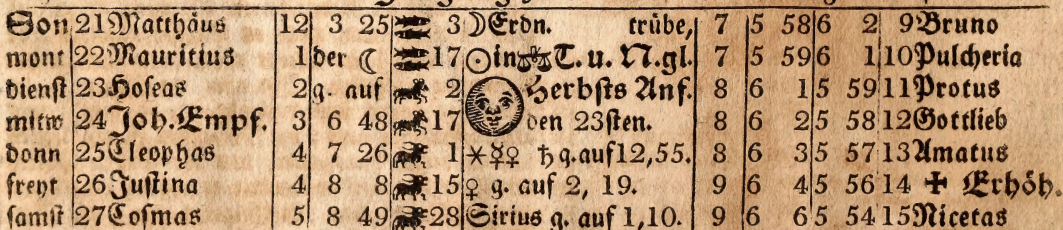 Son 21 Matthäus 12 3 25 3 ☽ Erdn. trübe, 7 5 58 6 2 9 Bruno
mont 22 Mauritius 1 der ☾ 17 ☉ in ♎ T. u. N. gl. 7 5 59 6 1 10 Pulcheria
dienst 23 Hoseas 2 g. auf 2 Herbsts Anf. 8 6 1 5 59 11 Protus
mitw 24 Joh. Empf. 3 6 48 17 den 23sten. 8 6 2 5 58 12 Gottlieb
donn 25 Cleophas 4 7 26 1 ⚹ ☿ ♀ ♄ g. auf 12, 55. 8 6 3 5 57 13 Amatus
freyt 26 Justina 4 8 8 15 ♀ g. auf 2, 19. 9 6 4 5 56 14 ✝ Erhöh.
samst 27 Cosmas 5 8 49 28 Sirius g. auf 1, 10. 9 6 6 5 54 15 Nicetas